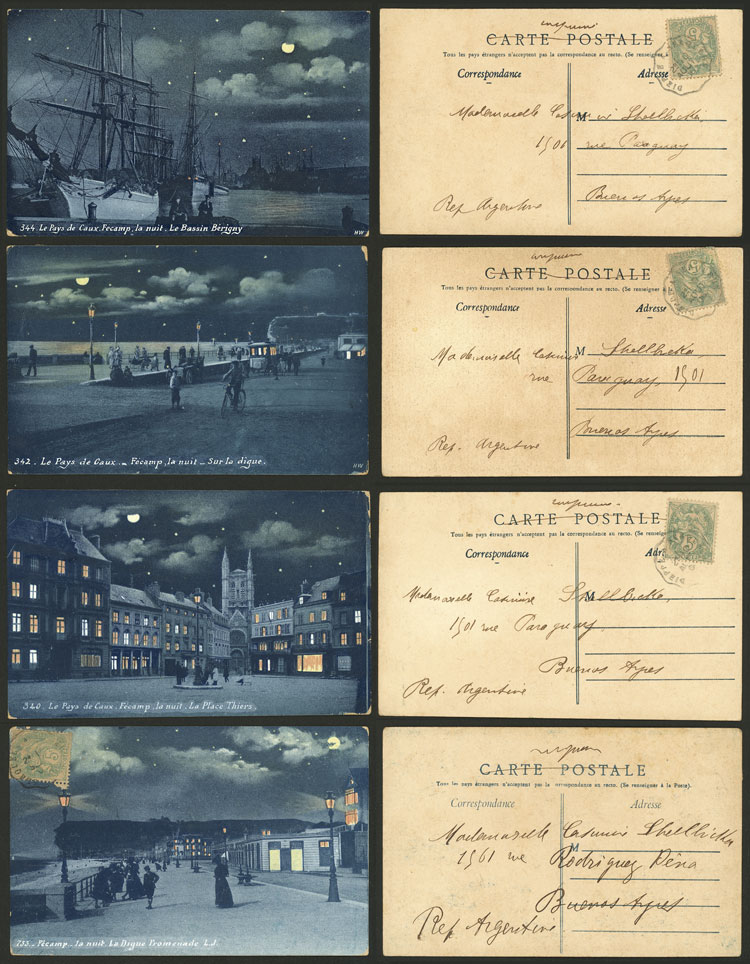 344. Le Pays de Caux. Fécamp, la nuit. Le Bassin Bérigny
HW
imprimé
CARTE POSTALE
Tous les pays étrangers n'acceptent pas la correspondance au recto. (Se renseigner à la
Correspondance
Adresse
Mademoiselle Casimire M Shellicka,
1501 rue Paraguay
Buenos Ayres
Rep Argentine
342. Le Pays de Caux. _ Fécamp, la nuit _ Sur la digue.
HW
CARTE POSTALE
Tous les pays étrangers n'acceptent pas la correspondance au recto. (Se renseigner à
Correspondance
Adresse
Mademoiselle Casimire M
rue Paraguay, 1501
Buenos Ayres
Rep. Argentine
340. Le Pays de Caux. Fécamp, la nuit. La Place Thiers.
CARTE POSTALE
Tous les pays étrangers n'acceptent pas la correspondance au recto. (Se renseign
Correspondance
Adr
DIEPPE
Mademoiselle Casimire M
1501 rue Paraguay
Buenos Ayres
Rep. Argentine
733. - Fécamp. _ la nuit. La Digue Promenade L.J.
CARTE POSTALE
Tous les pays étrangers n'acceptent pas la correspondance au recto. (Se renseigner à la Poste).
Correspondance
Adresse
Mademoiselle Casimire
M
rue Rodriguez Péna
Buenos Ayres
Rep Argentine